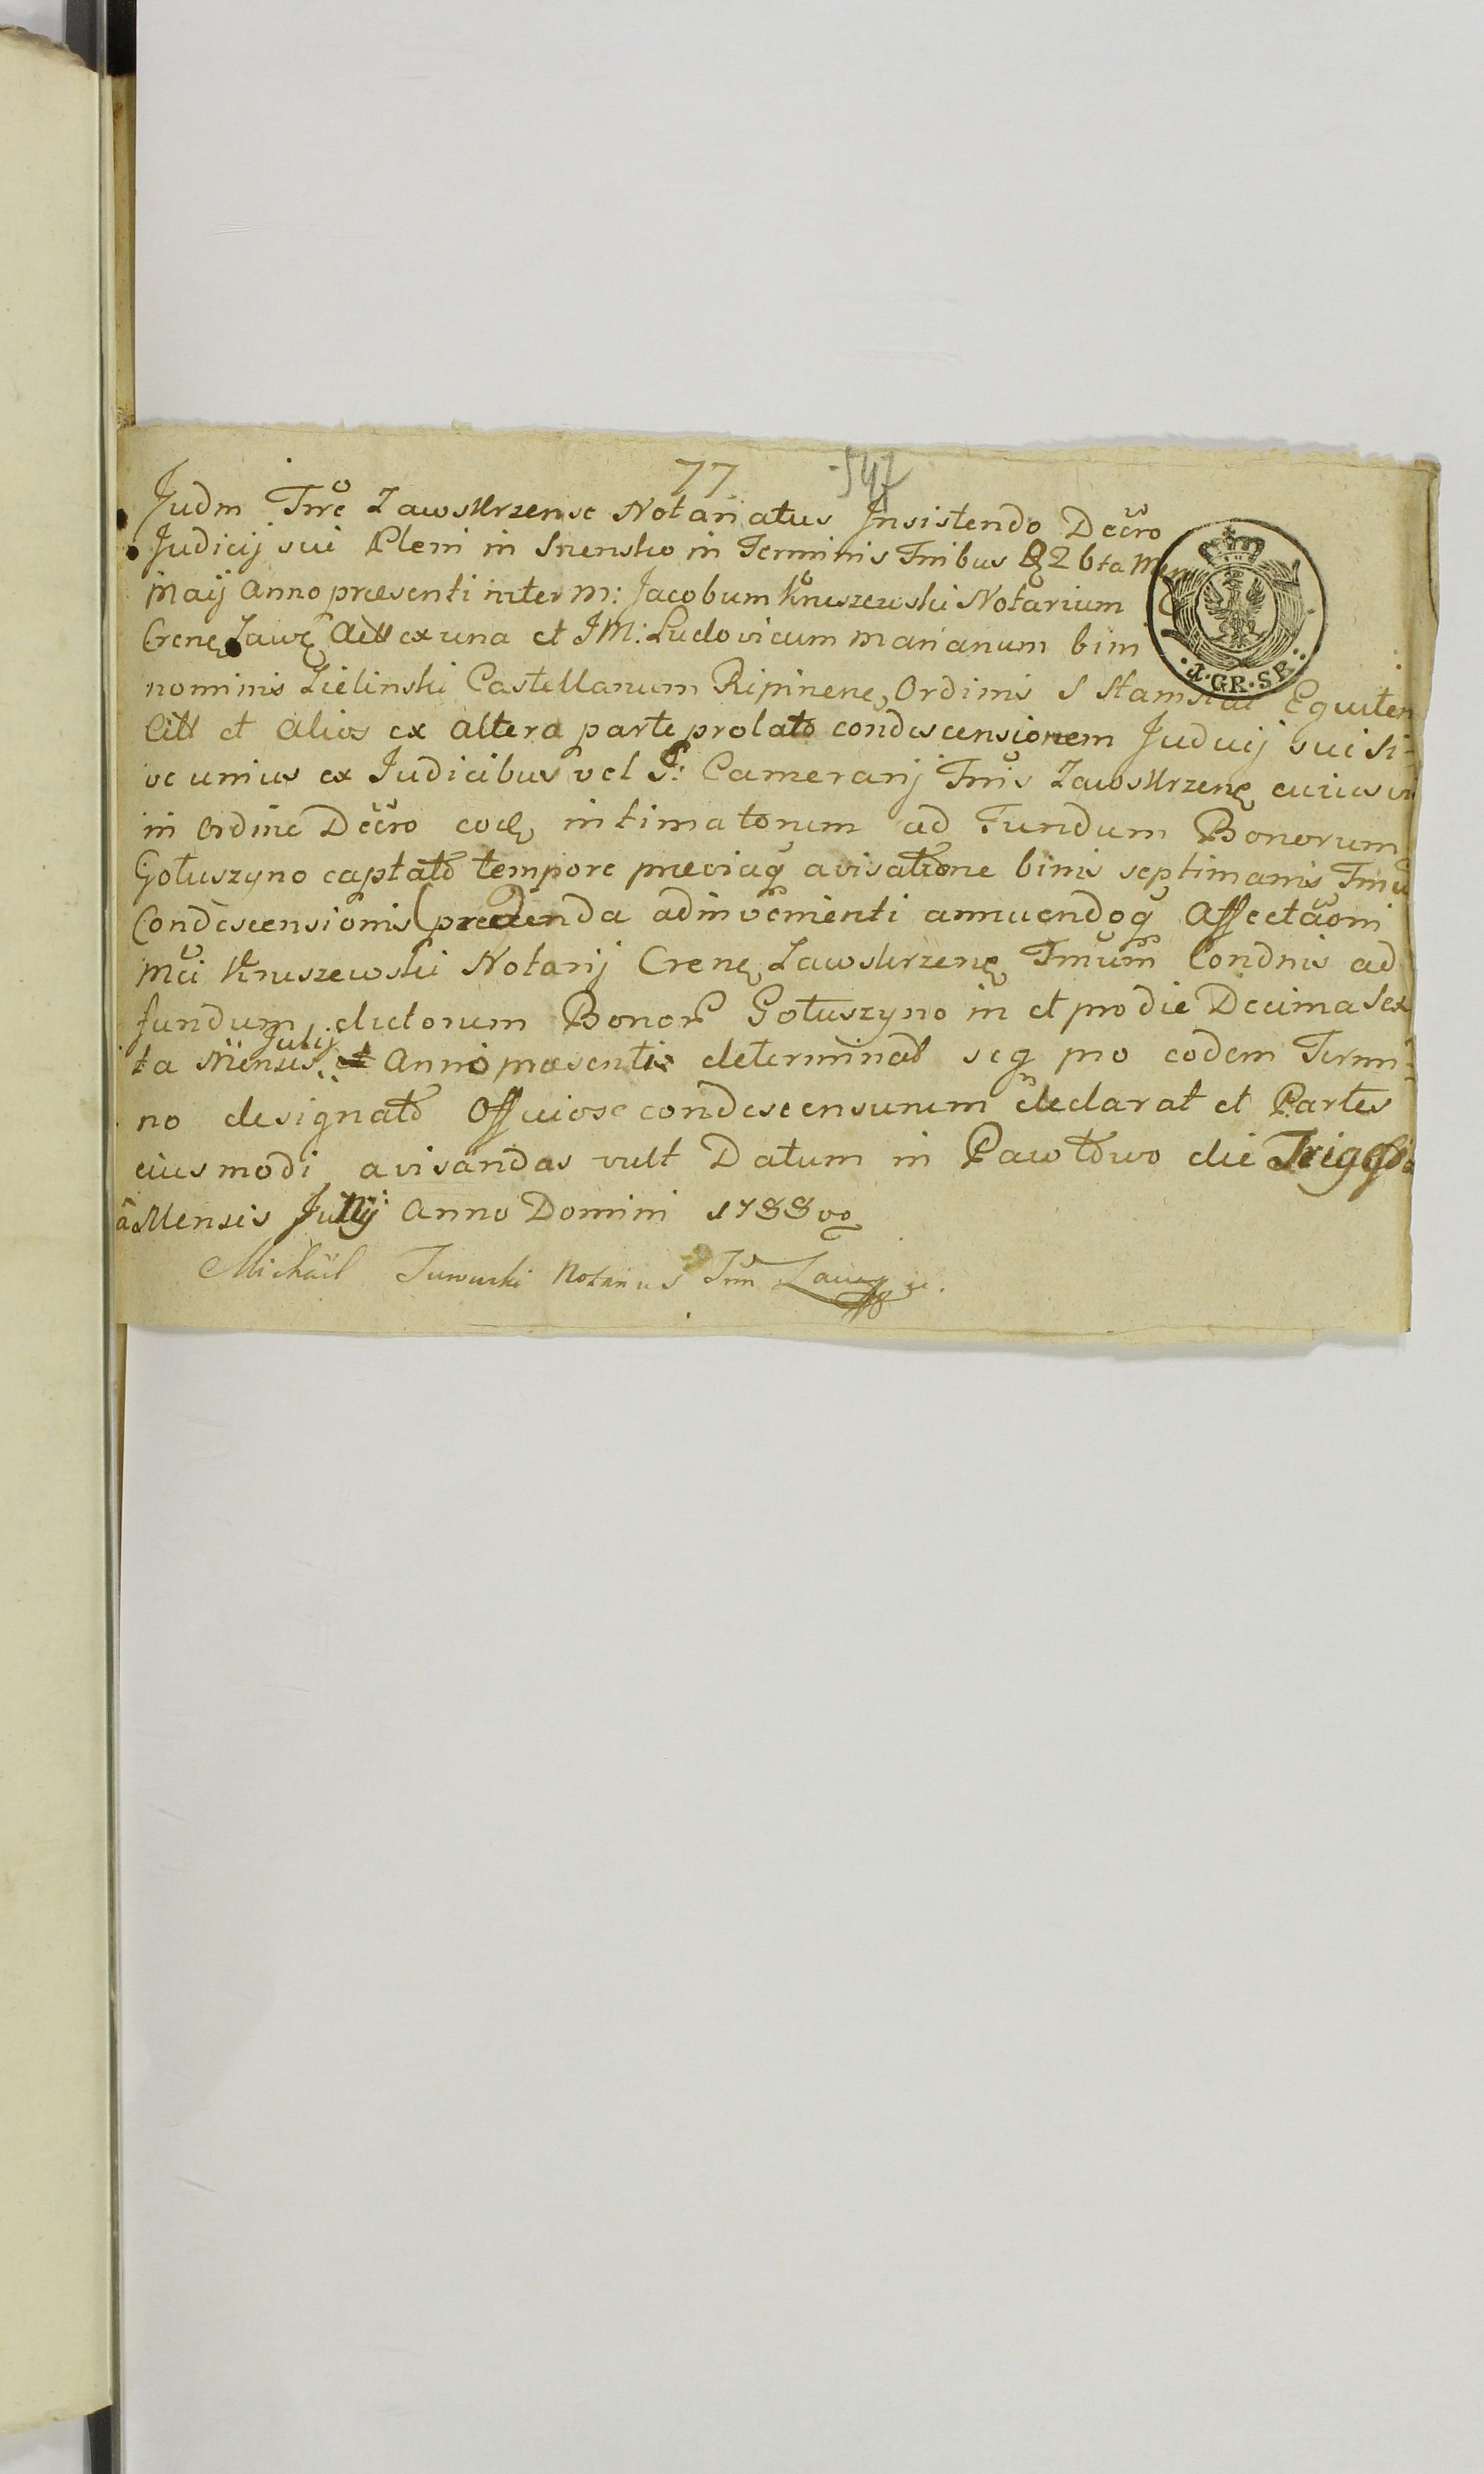 77 547
Judm Trre Zawskrzense Notariatus Insistendo Decro
Judicij sui Pleni in Srensko in Terminis Tnibus 26ta Mem
Maij Anno præsenti inter M: Jacobum Kruszewski Notarium
Crenę Zawę Act ex una et JM: Ludovicum Marianum bim
nominis Zielinski Castellanum Ripinenę Ordinis S Stanislai Equitem
Citt et Alios ex Altera parte prolato condescensionem Judicij sui Si-
ve unius ex Judicibus vel S: Camerarij Tris Zawskrzenę cuius vi
in Ordine Decro eodę intimatorum ad Fundum Bonorum
Gotuszyno captato tempore præviaq avisatione binis septimanis Tmu
Condescensionis præ da adinvenienti annuendoq Affectaoni
Mci Kruszewski Notarij Crenę Zawskrzenę Tmum Condnis ad
fundum dictorum Bonor Gotuszyno in et pro die Decima Sex
Julij
ta Mensis Anni præsentis determinat seq pro eodem Termi-
no designato Officiose condescensurum declarat et Partes
eiusmodi avisandas vult Datum in Pawłowo die
a Mensis Anno Domini 1788vo
Michael Notarius Trrm Zaw
2.GR.SR.